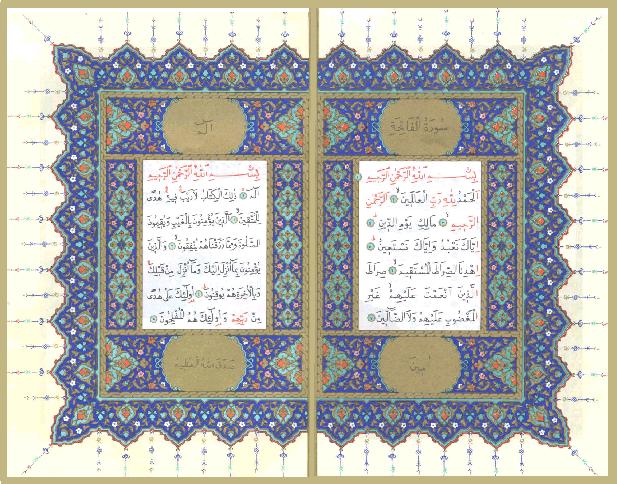 سُورَةُ الْفَاتِحَةِ
بِسْمِ اللّٰهِ الرَّحْمٰنِ الرَّحِيمِ
اَلْحَمْدُ لِلّٰهِ رَبِّ الْعَالَمِينَ الرَّحْمٰنِ
الرَّحِيمِ مَالِكِ يَوْمِ الدِّينِ
اِيَّاكَ نَعْبُدُ وَاِيَّاكَ نَسْتَعِينُ
اِهْدِنَا الصِّرَاطَ الْمُسْتَقِيمَ صِرَاطَ
الَّذِينَ اَنْعَمْتَ عَلَيْهِمْ غَيْرِ
الْمَغْضُوبِ عَلَيْهِمْ وَلَا الضَّالِّينَ
الم
بِسْمِ اللّٰهِ الرَّحْمٰنِ الرَّحِيمِ
الٓمٓ ذٰلِكَ الْكِتَابُ لَا رَيْبَ فِيهِ هُدًى
لِلْمُتَّقِينَ اَلَّذِينَ يُؤْمِنُونَ بِالْغَيْبِ وَيُقِيمُونَ
الصَّلٰوةَ وَمِمَّا رَزَقْنَاهُمْ يُنْفِقُونَ وَالَّذِينَ
يُؤْمِنُونَ بِمَا اُنْزِلَ اِلَيْكَ وَمَا اُنْزِلَ مِنْ قَبْلِكَ
وَبِالْاٰخِرَةِ هُمْ يُوقِنُونَ اُولٰئِكَ عَلٰى هُدًى
مِنْ رَبِّهِمْ وَاُولٰئِكَ هُمُ الْمُفْلِحُونَ
صدق الله العظيم